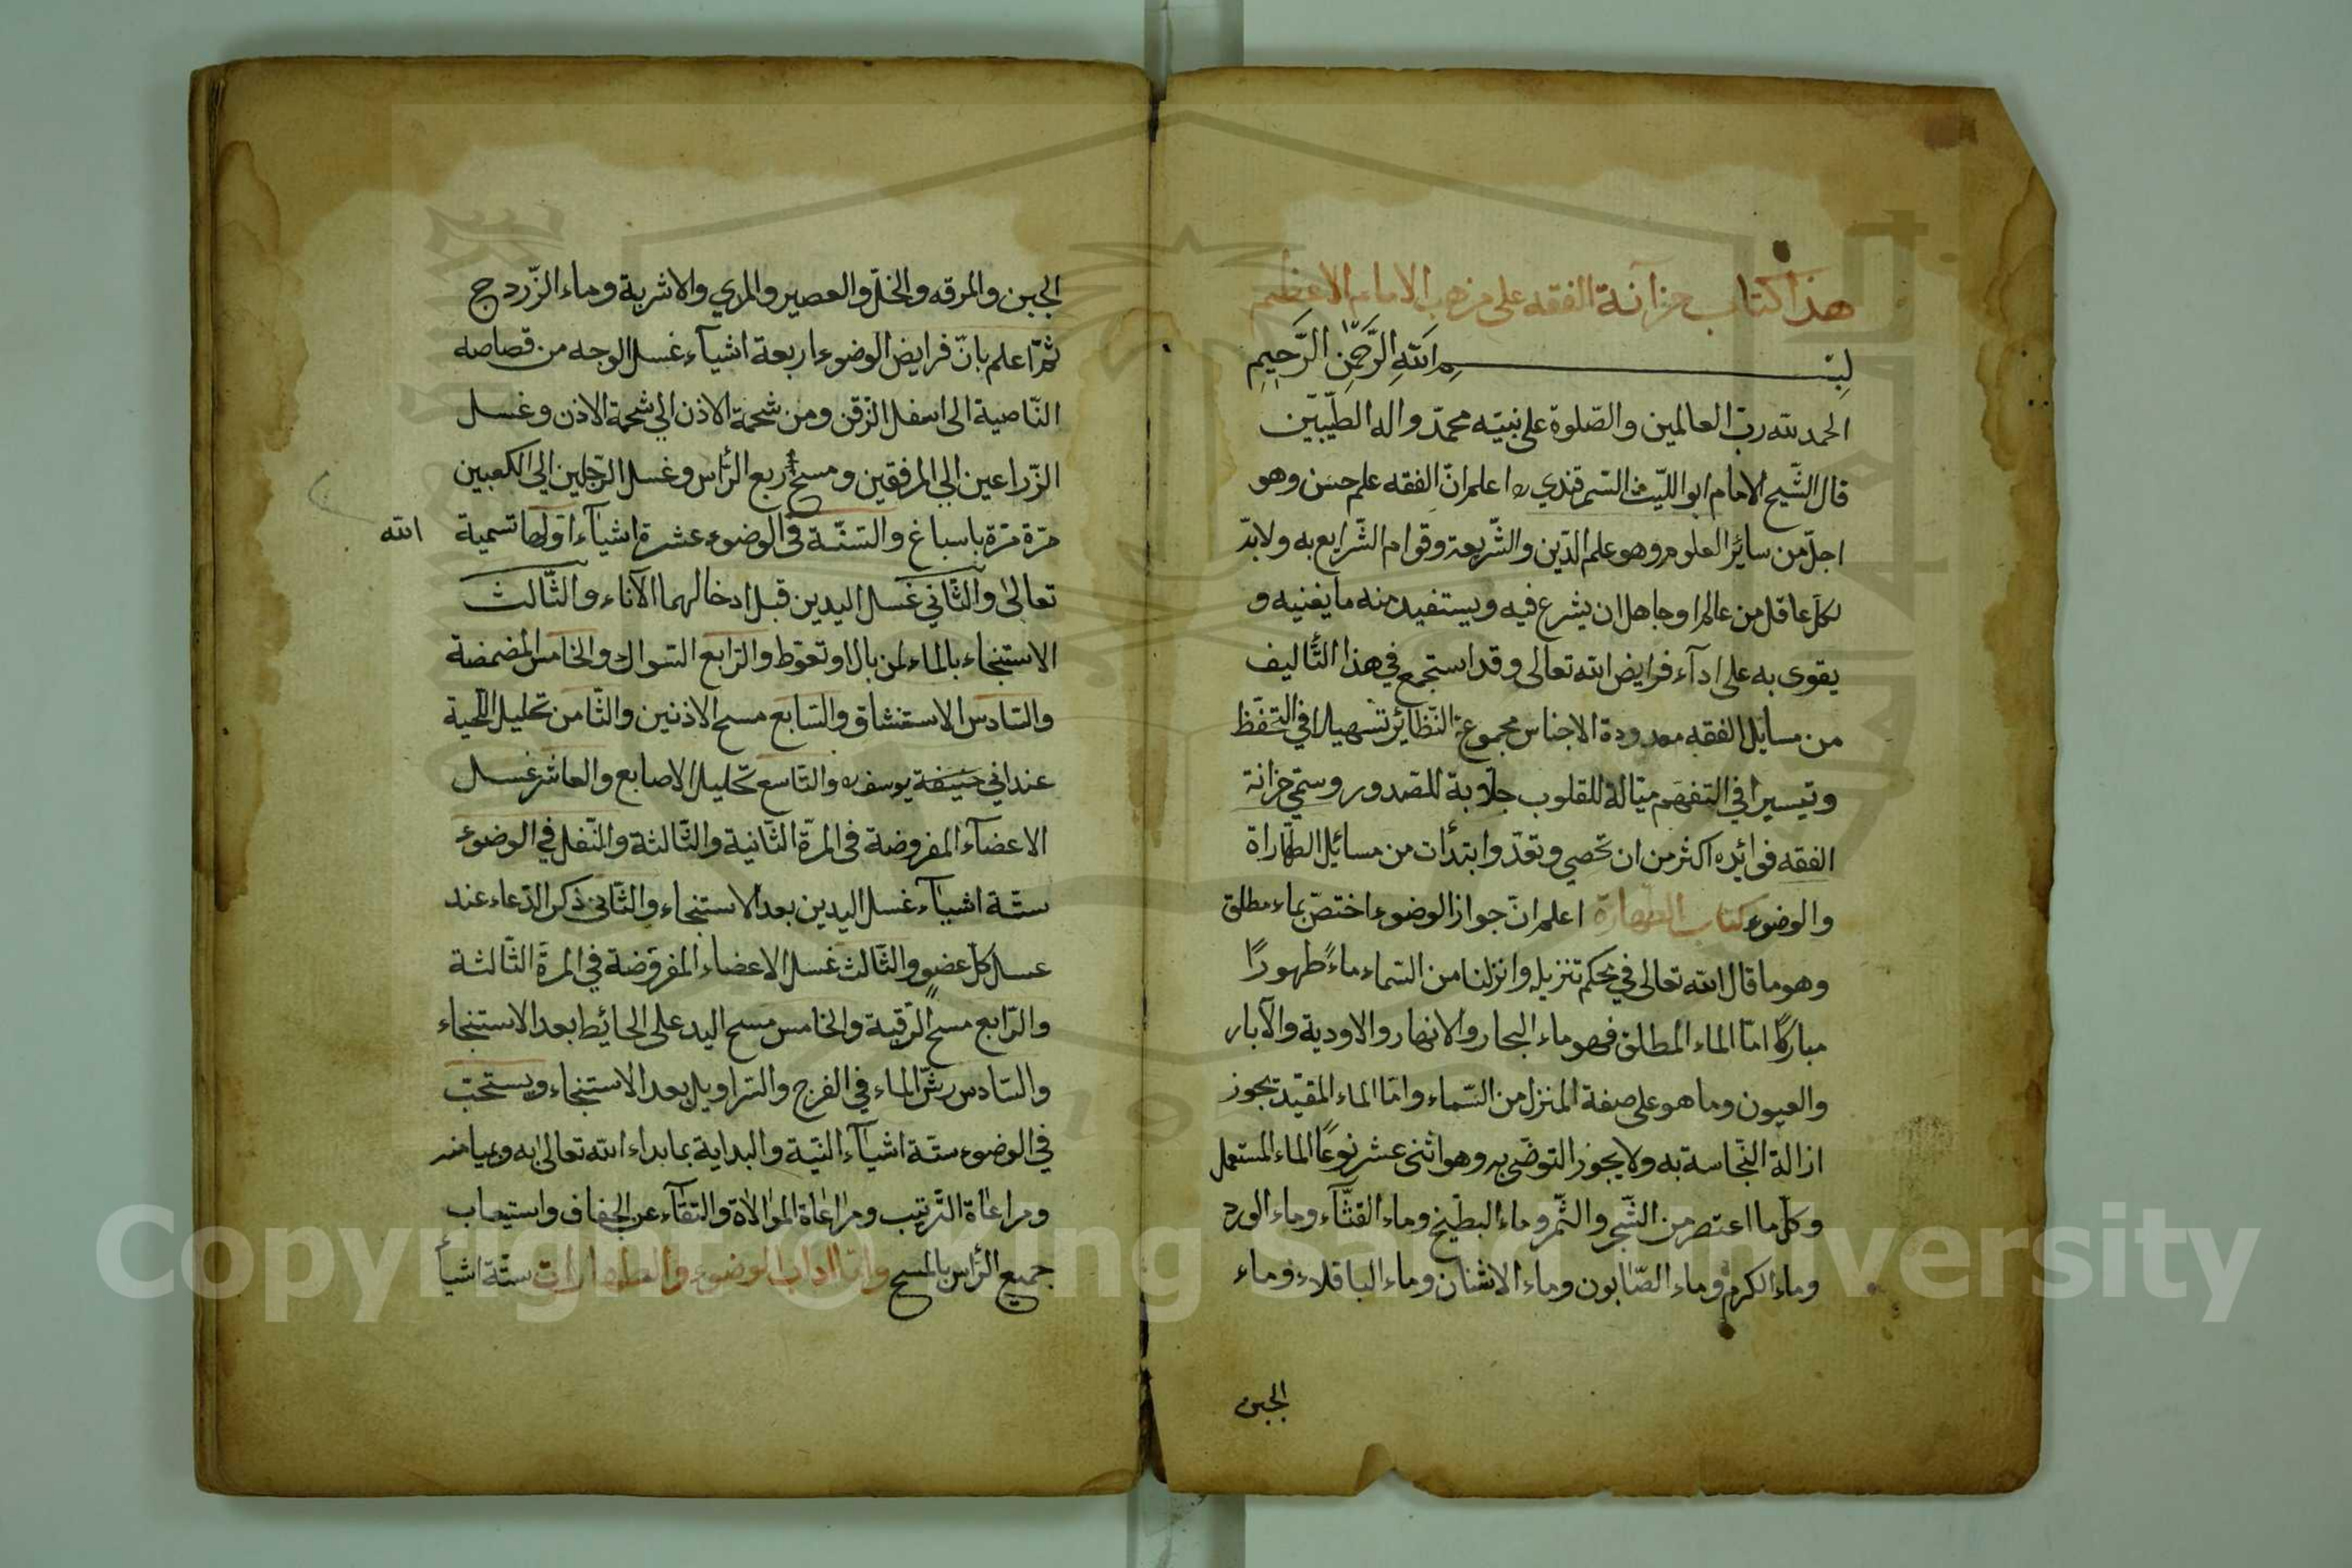 هذا كتاب خزآنة الفقه على مزهب الامام الاعظم
بسم الله الرَّحْمٰنِ الرَّحِيمِ
الحمد لله ربّ العالمين والصّلوة على نبيّه محمّد واله الطّيّبين
قال الشّيخ الامام ابو اللّيث السّمرقندي ره اعلم انّ الفقه علم حسن وهو
اجلّ من سائر العلوم وهو علم الدّين والشّريعة وقوام الشّرايع به ولا بدّ
لكلّ عاقل من عالم او جاهل ان يشرع فيه ويستفيد منه ما يغنيه و
يقوى به على ادآء فرايض الله تعالى وقد استجمع في هذا التّأليف
من مسايل الفقه معدودة الاجناس مجموعة النّظائر تسهيلا في التّحفّظ
وتيسيرا في التفهّم ميّالة للقلوب جلّابة للصّدور وسمّي خزانة
الفقه فوائده اكثر من ان تحصي وتعدّ وابتدأت من مسائل الطّهاراة
والوضوء كتاب الطهارة اعلم انّ جواز الوضوء اختصّ بماء مطلق
وهو ما قال الله تعالى في محكم تنزيله وانزلنا من السّماء ماءً طهورًا
مباركًا امّا الماء المطلق فهو ماء البحار والانهار والاودية والآبار
والعيون وما هو على صفة المنزل من السّماء وامّا الماء المقيّد تجوز
ازالة النّجاسة به ولا يجوز التوضّي به وهو اثنى عشر نوعًا الماء المستعمل
وكلّ ما اعتصر من الشّجر والثّمر وماء البطّيخ وماء القثّآء وماء الورد
وماء الكرم وماء الصّابون وماء الاشنان وماء الباقلاء وماء
الجبن
الجبن والمرقه والخلّ والعصير والمري والاشربة وماء الزّردج
ثمّ اعلم بانّ فرايض الوضوء اربعة اشيآء غسل الوجه من قصاصه
النّاصية الى اسفل الزقن ومن شحمة الاذن الي شحمة الاذن وغسل
الزّراعين الي المرفقين ومسح ربع الرّأس وغسل الرّجلين الي الكعبين
مرّة مرّة باسباغ والسّنّة في الوضوء عشرة اشيآء اوّلها تسمية الله
تعالى والثّاني غسل اليدين قبل ادخالهما الآناء والثّالث
الاستنجاء بالماء لمن بال او تغوّط والرّابع السّواك والخامس المضمضة
والسّادس الاستنشاق والسّابع مسح الاذنين والثّامن تخليل اللّحية
عند ابي حنيفة يوسف ره والتّاسع تخليل الاصابع والعاشر غسل
الاعضآء المفروضة في المرّة الثّانية والثّالثة والنّفل في الوضوء
ستّة اشيآء غسل اليدين بعد الاستنجاء والثّاني ذكر الدّعاء عند
عسل كلّ عضو والثّالث غسل الاعضاء المفروضة في المرّة الثّالثة
والرّابع مسح الرّقبة والخامس مسح اليد على الحائط بعد الاستنجاء
والسّادس رشّ الماء في الفرج والسّراويل بعد الاستنجاء ويستحبّ
في الوضوء ستّة اشيآء النيّة والبداية بما بداء الله تعالى به وبميامنه
ومراعاة التّرتيب ومراعاة الموالاة والتقآء عن الجفاف واستيعاب
جميع الرّأس بالمسح وامّا اداب الوضوء والطهارات ستّة اشيآء